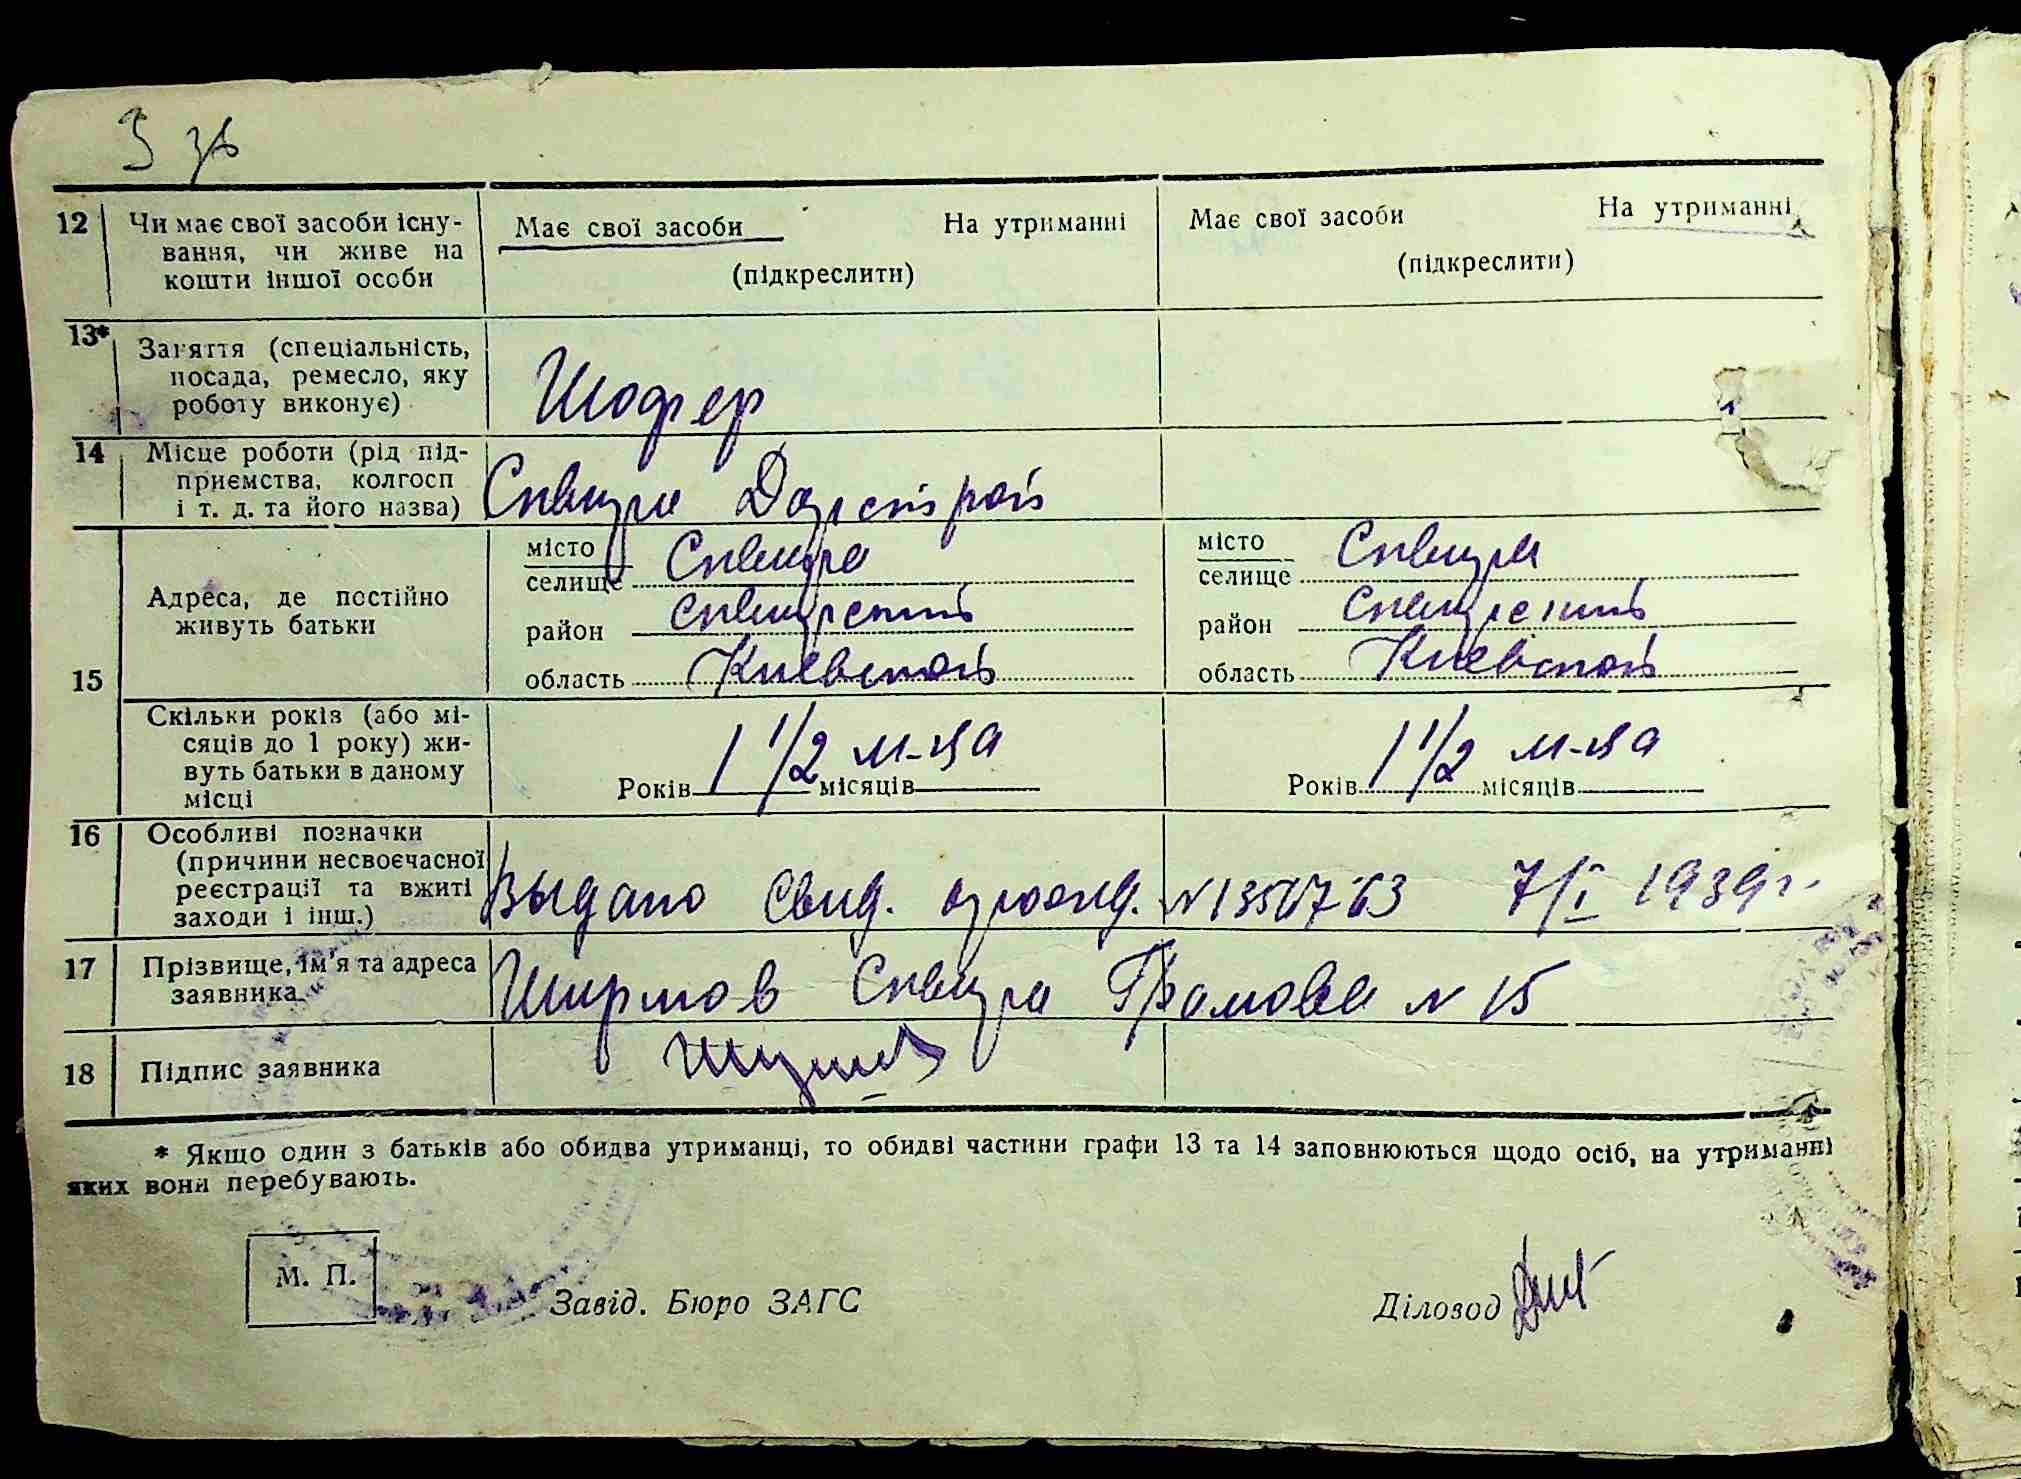 3 зв
12 Чи має свої засоби існу-
вання, чи живе на
кошти іншої особи
Має свої засоби На утриманні
(підкреслити)
Має свої засоби На утриманні
(підкреслити)
13* Заняття (спеціальність,
посада, ремесло, яку
роботу виконує)
Шофер
14 Місце роботи (рід під-
приємства, колгосп
і т. д. та його назва)
Сквира Дорстрой
15
Адреса, де постійно
живуть батьки
місто Сквира
селище
район Сквирский
область Киевской
місто Сквира
селище
район Сквирский
область Киевской
Скільки років (або мі-
сяців до 1 року) жи-
вуть батьки в даному
місці
Років 1 1/2 м-ца місяців
Років 1 1/2 м-ца місяців
16 Особливі позначки
(причини несвоєчасної
реєстрації та вжиті
заходи і інш.)
Выдано Свид. о рожд. N 7/I 1939 г.
17 Прізвище, ім'я та адреса
заявника
Сквира N 15
18 Підпис заявника
* Якщо один з батьків або обидва утриманці, то обидві частини графи 13 та 14 заповнюються щодо осіб, на утриманні
яких вони перебувають.
М. П.
Завід. Бюро ЗАГС
Діловод